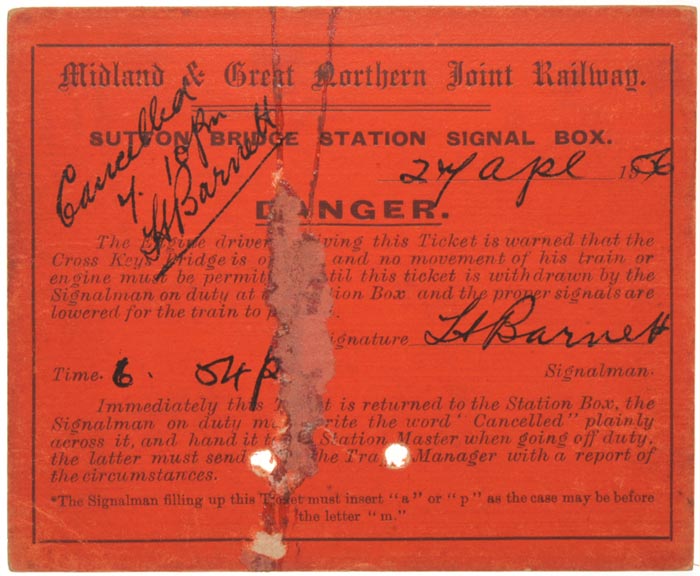 Midland & Great Northern Joint Railway.
SUTTON BRIDGE STATION SIGNAL BOX.
Cancelled
7. 10pm
H Barnett
27 Apl 1956
DANGER.
The Engine driver receiving this Ticket is warned that the
Cross Keys Bridge is o and no movement of his train or
engine must be permit until this ticket is withdrawn by the
Signalman on duty at t Station Box and the proper signals are
lowered for the train to p
Signature H Barnett
Time. 6. 54 p Signalman.
Immediately this Ticket is returned to the Station Box, the
Signalman on duty must write the word "Cancelled" plainly
across it, and hand it to Station Master when going off duty,
the latter must send the Traffic Manager with a report of
the circumstances.
*The Signalman filling up this Ticket must insert "a" or "p" as the case may be before
the letter "m."